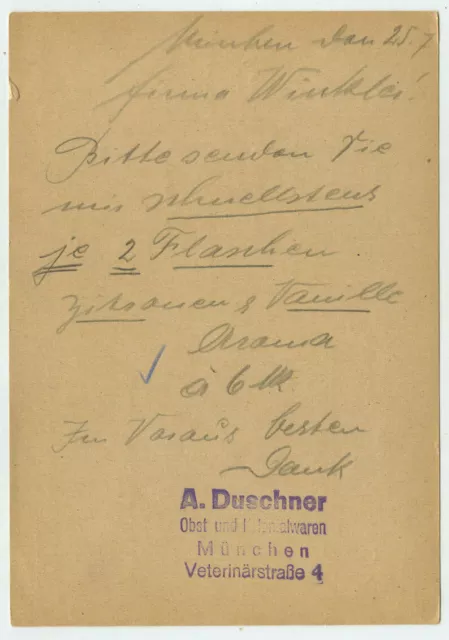 München den 25.7
Firma Winkler!
Bitte senden Sie
mir schnellstens
je 2 Flaschen
Zitronen & Vanille
Aroma
à 6 M
Im Voraus besten
Dank
A. Duschner
Obst und Kolonialwaren
München
Veterinärstraße 4